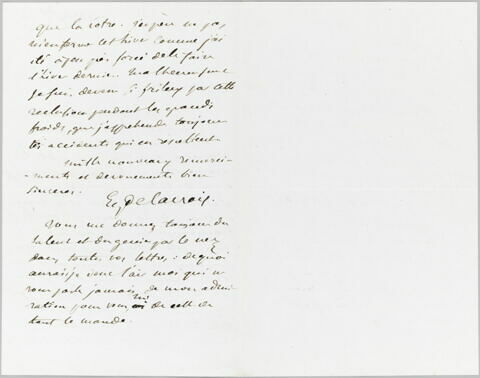 que la votre. J'espère ne pas
m'enfermer cet hiver comme j'ai
été à peu près forcé de le faire
l'hiver dernier. Malheureusement
je suis devenu si frileux par cette
reclusion pendant les grands
froids, que j'apprehende toujours
les accidents qui en resultent.
Mille nouveaux remerci-
-ments et devouements bien
sinceres.
Eg Delacroix.
Vous me donnez toujours du
talent et du genie par le nez
dans toutes vos lettres : de quoi
aurais-je donc l'air moi qui ne
vous parle jamais de mon admi-
ration pour vous, ni de celle de
tout le monde.